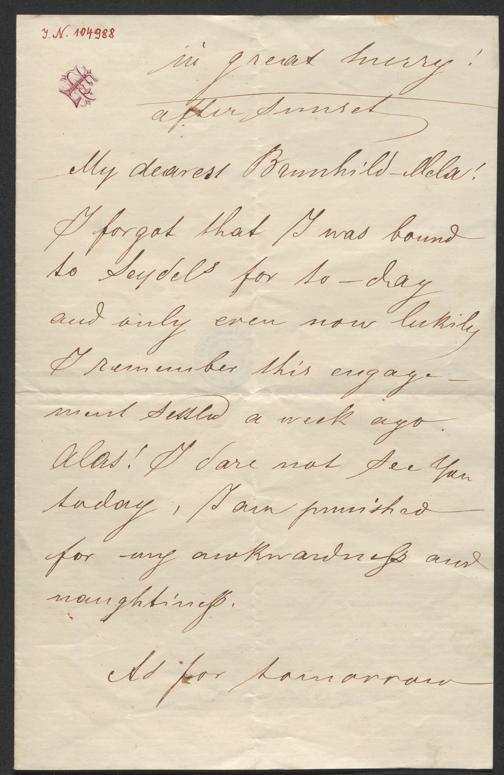 I.N. 104988
in great hurry!
after sunset
My dearest Brunhild-Mela!
I forgot that I was bound
to Seydels for to-day
and only even now lukily
I remember this engage-
ment settled a week ago.
Alas! I dare not see You
today, I am punished
for my awkwardness and
naughtiness.
As for tomorrow